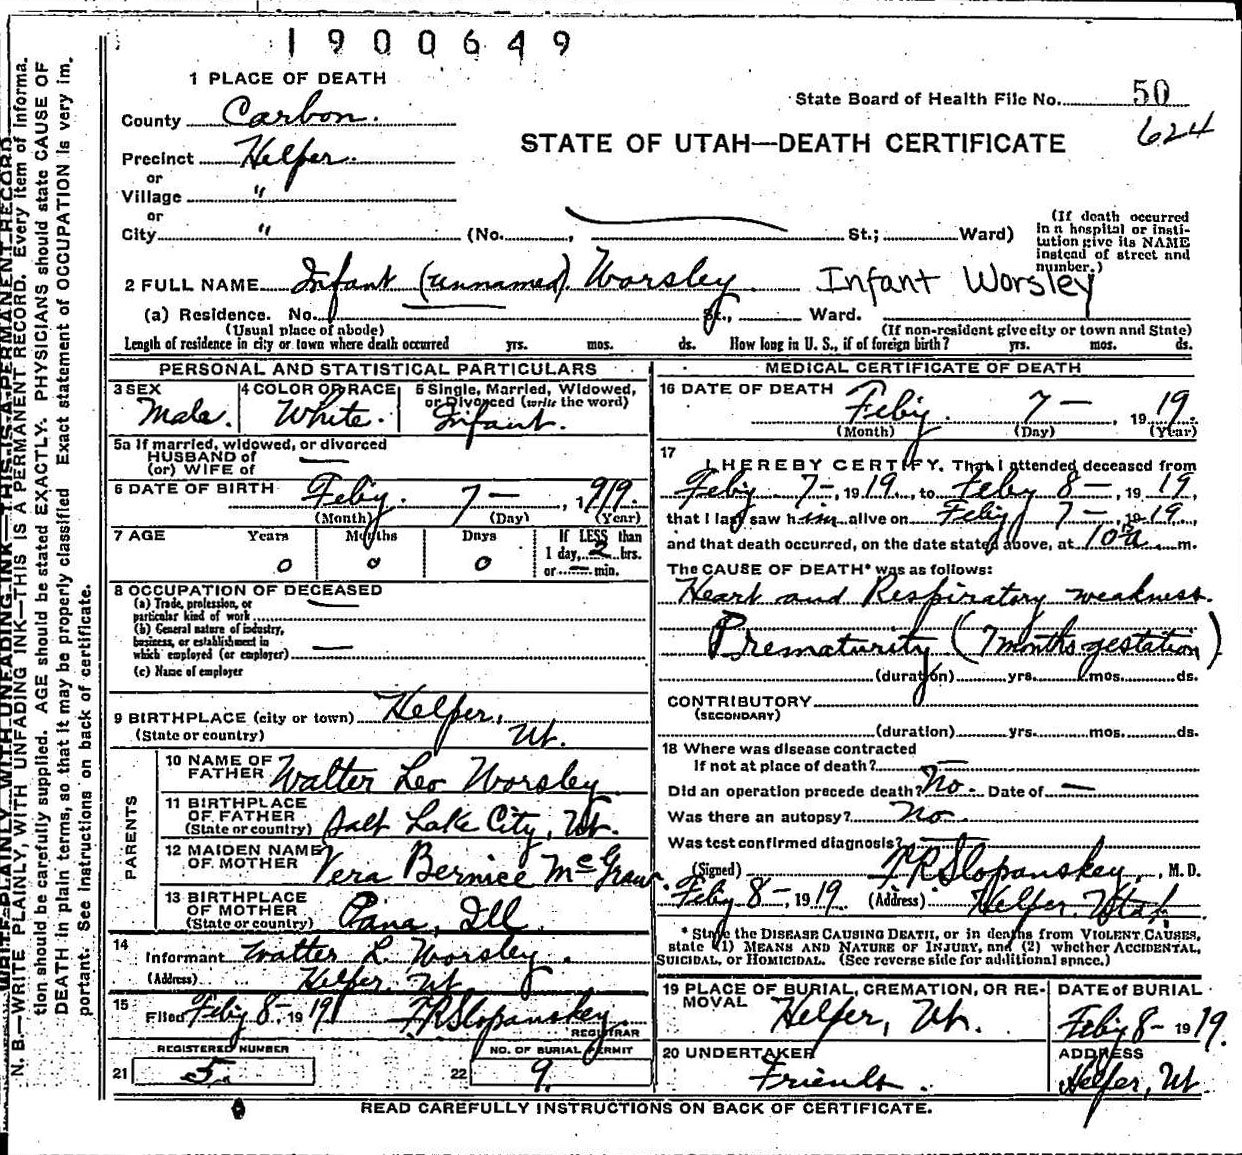 1900649
1 PLACE OF DEATH
State Board of Health File No. 50
624
County Carbon.
STATE OF UTAH—DEATH CERTIFICATE
Precinct Helper.
or
Village "
or
City " (No. , St.; Ward)
(If death occurred in a hospital or institution give its NAME instead of street and number.)
2 FULL NAME Infant (unnamed) Worsley Infant Worsley
(a) Residence. No. St., Ward.
(Usual place of abode) (If non-resident give city or town and State)
Length of residence in city or town where death occurred yrs. mos. ds. How long in U. S., if of foreign birth? yrs. mos. ds.
PERSONAL AND STATISTICAL PARTICULARS
3 SEX Male.
4 COLOR OR RACE White.
5 Single, Married, Widowed, or Divorced (write the word) Infant.
5a If married, widowed, or divorced
HUSBAND of
(or) WIFE of —
6 DATE OF BIRTH Feby. 7— , 1919.
(Month) (Day) (Year)
7 AGE Years Months Days If LESS than
0 0 0 1 day, 2 hrs.
or — min.
8 OCCUPATION OF DECEASED
(a) Trade, profession, or
particular kind of work —
(b) General nature of industry,
business, or establishment in
which employed (or employer) —
(c) Name of employer
9 BIRTHPLACE (city or town) Helper,
(State or country) Ut.
PARENTS
10 NAME OF FATHER Walter Leo Worsley
11 BIRTHPLACE OF FATHER (State or country) Salt Lake City, Ut.
12 MAIDEN NAME OF MOTHER Vera Bernice McGraw
13 BIRTHPLACE OF MOTHER (State or country) Pana, Ill
14
Informant Walter L. Worsley.
(Address) Helper, Ut
15 Filed Feby 8-, 1919 F.R. Slopanskey.
REGISTRAR
REGISTERED NUMBER
21 5.
NO. OF BURIAL PERMIT
22 9.
MEDICAL CERTIFICATE OF DEATH
16 DATE OF DEATH Feby. 7— 1919.
(Month) (Day) (Year)
17 I HEREBY CERTIFY, That I attended deceased from
Feby 7-, 1919, to Feby 8—, 1919,
that I last saw him alive on Feby 7—, 1919,
and that death occurred, on the date stated above, at 10 a m.
The CAUSE OF DEATH* was as follows:
Heart and Respiratory weakness.
Prematurity (7 months gestation)
(duration) yrs. mos. ds.
CONTRIBUTORY
(SECONDARY)
(duration) yrs. mos. ds.
18 Where was disease contracted
If not at place of death? —
Did an operation precede death? No. Date of —
Was there an autopsy? No.
Was test confirmed diagnosis?
(Signed) F.R. Slopanskey, M. D.
Feby 8-, 1919. (Address) Helper, Utah
* State the DISEASE CAUSING DEATH, or in deaths from VIOLENT CAUSES,
state (1) MEANS AND NATURE OF INJURY, and (2) whether ACCIDENTAL,
SUICIDAL, or HOMICIDAL. (See reverse side for additional space.)
19 PLACE OF BURIAL, CREMATION, OR REMOVAL Helper, Ut.
DATE of BURIAL Feby 8- 1919.
20 UNDERTAKER Friends.
ADDRESS Helper, Ut.
READ CAREFULLY INSTRUCTIONS ON BACK OF CERTIFICATE.
WRITE PLAINLY WITH UNFADING INK—THIS IS A PERMANENT RECORD
N. B.—WRITE PLAINLY, WITH UNFADING INK—THIS IS A PERMANENT RECORD. Every item of informa-
tion should be carefully supplied. AGE should be stated EXACTLY. PHYSICIANS should state CAUSE OF
DEATH in plain terms, so that it may be properly classified Exact statement of OCCUPATION is very im-
portant. See instructions on back of certificate.